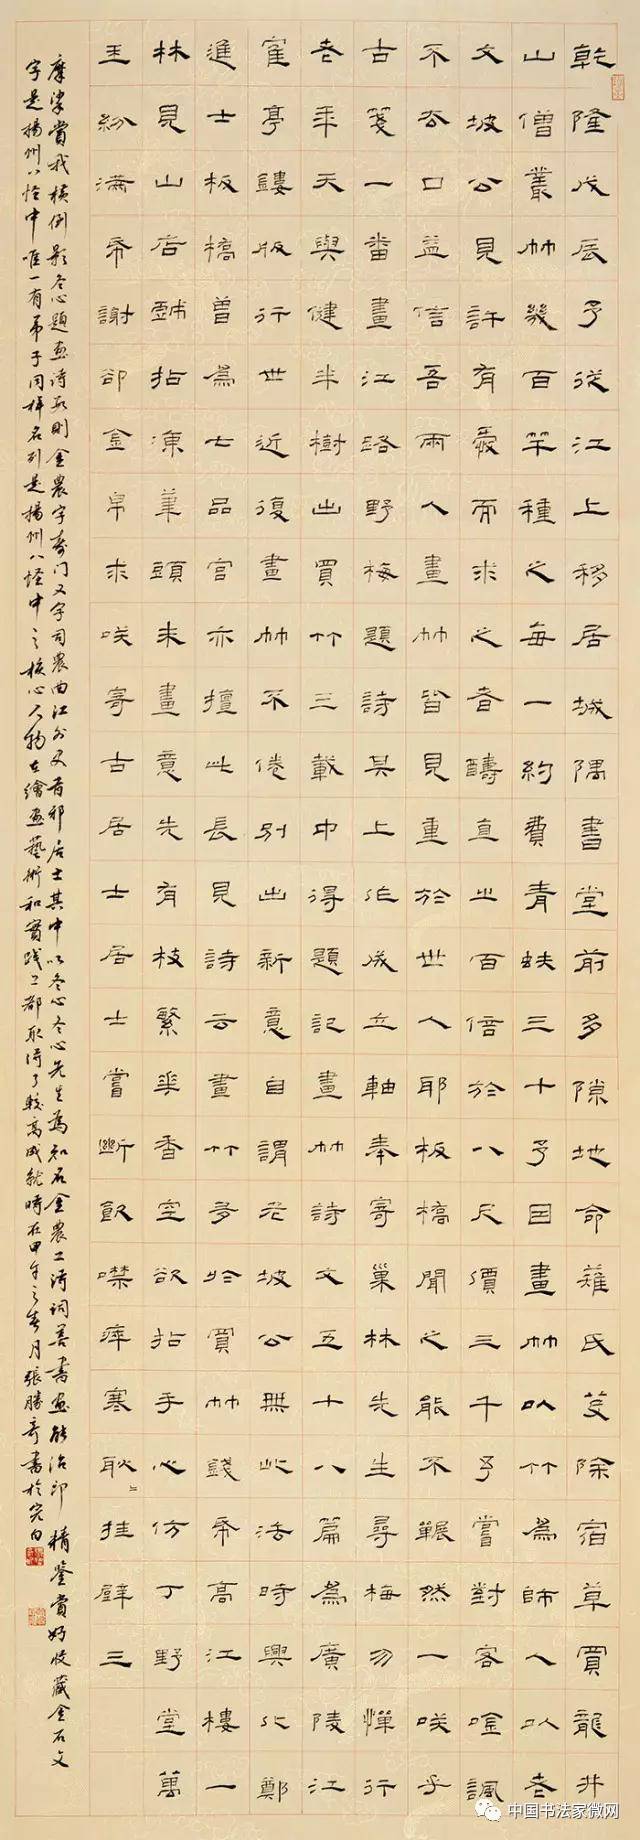 乾隆戊辰予從江上移居城隅書堂前多隙地命薙氏芟除宿草買龍井
山僧叢竹幾百竿種之每一約費青蚨三十予因畫竹以竹為師人以老
文坡公見許有愛而求之者酬直之百倍於八尺價三千予嘗對客唫諷
不容口益信吾兩人畫竹皆見重於世人耶板橋聞之能不冁然一咲乎
古箋一番畫江路野梅題詩其上作成立軸奉寄巢林先生尋梅勿憚行
老年天與健半樹出買竹三載中得題記畫竹詩文五十八篇為廣陵江
亭鏤版行世近復畫竹不倦別出新意自謂老坡公無此法時興化鄭
進士板橋曾為七品官亦擅此長見詩云畫竹多於買竹錢帋高江樓一
林見山店拈凍筆頭未畫意先有枝繁花香空欲拈手心仿丁野堂萬
玉紛滿帋謝卻金帛求咲寄古居士居士嘗斷飲噤痒寒耿挂壁三
摩挲賞我橫倒影冬心題畫詩數則金農字壽門又字司農曲江外史昔耶居士其中以冬心冬心先生為知名金農工詩詞善書畫能治印精鑒賞好收藏金石文
字是揚州八怪中唯一有弟子同樣名列是揚州八怪中之核心人物在繪畫藝術和實踐上都取得了較高成就時在甲午之春月張勝奇書於宛白
中国书法家微网